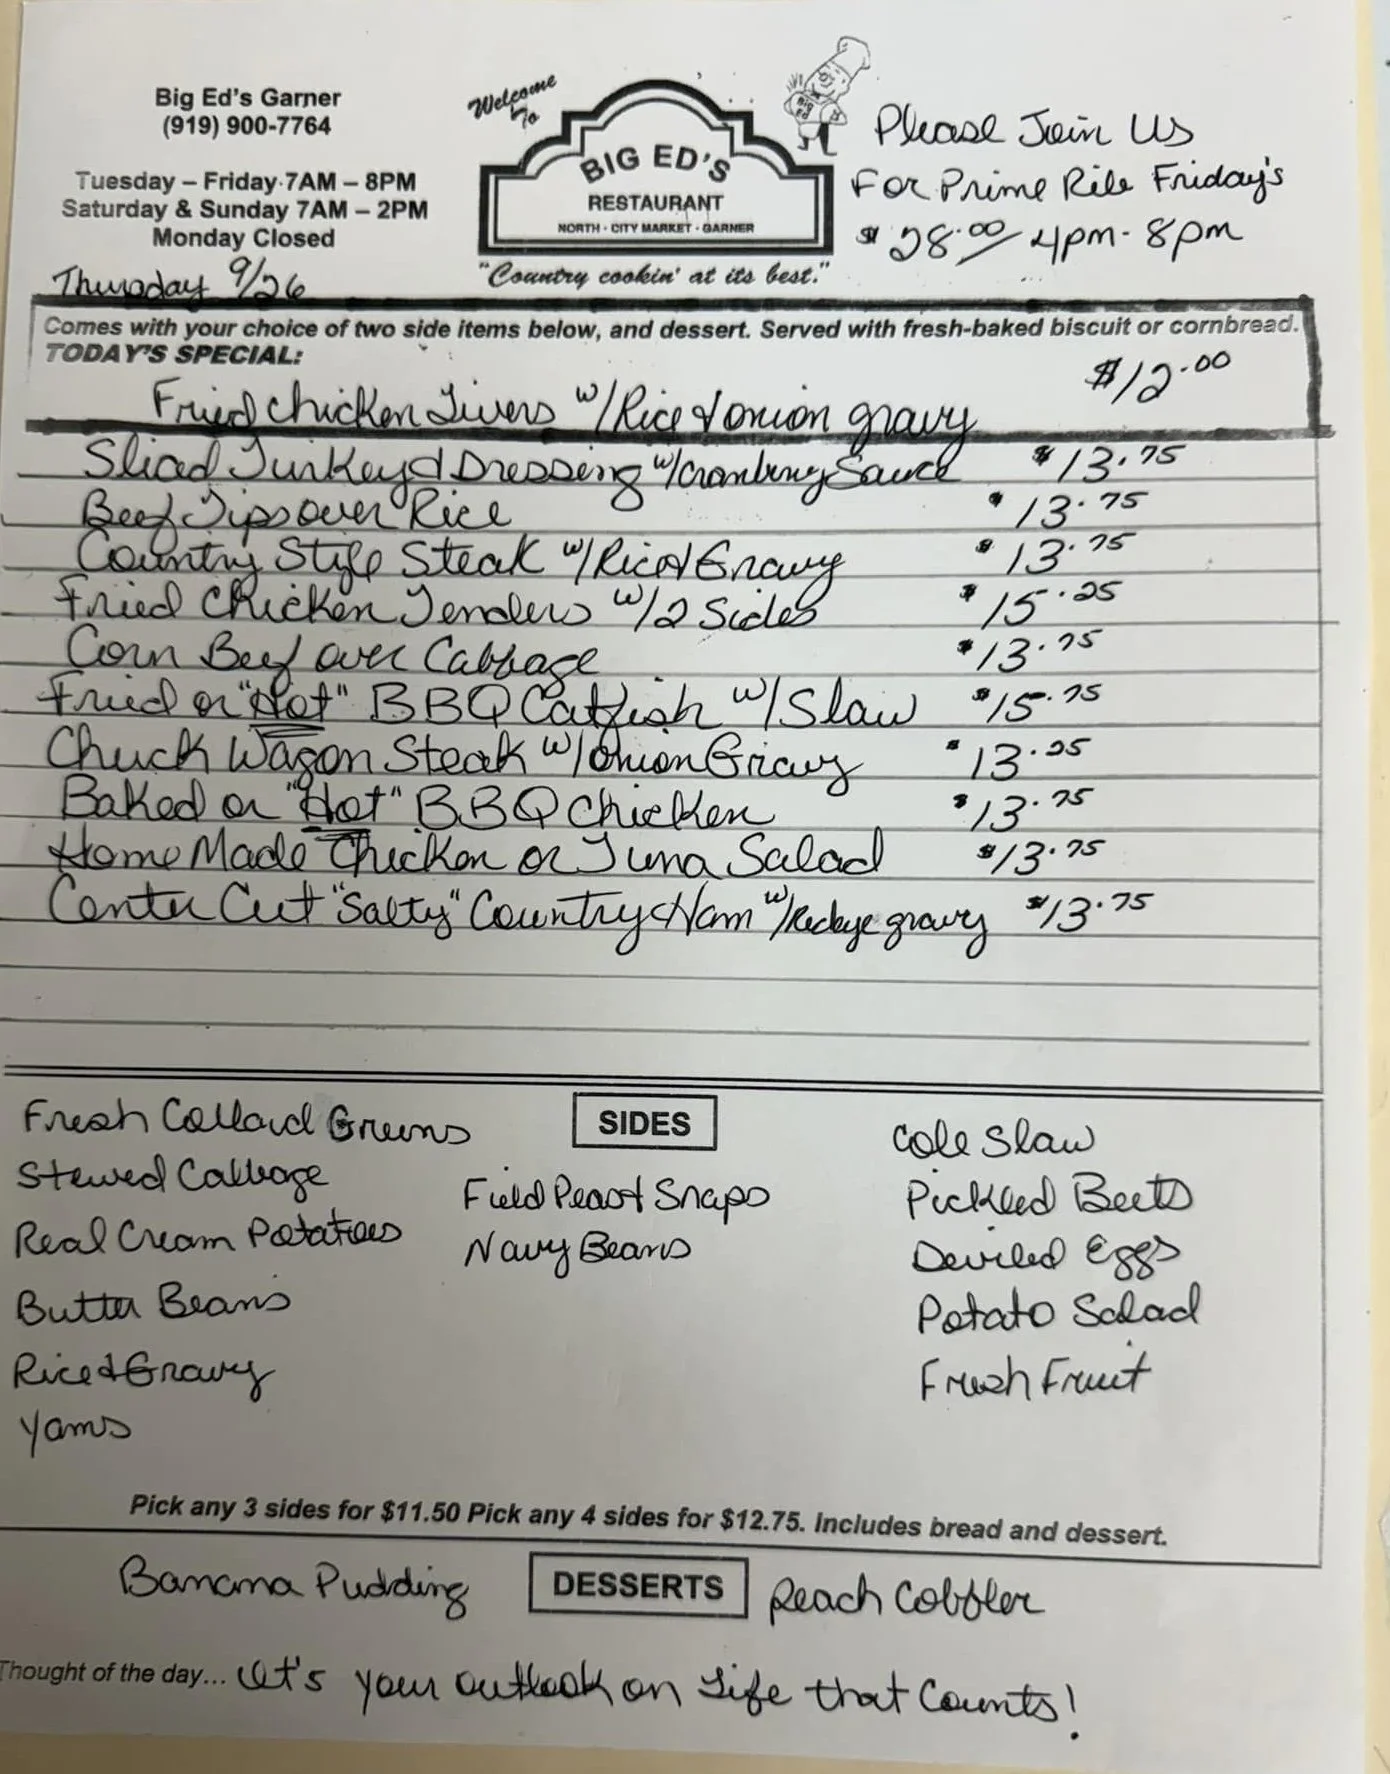 Big Ed's Garner
(919) 900-7764
Tuesday – Friday 7AM – 8PM
Saturday & Sunday 7AM – 2PM
Monday Closed
Thursday 9/26
Welcome
To
Big Ed
BIG ED'S
RESTAURANT
NORTH · CITY MARKET · GARNER
"Country cookin' at its best."
Please Join Us
For Prime Rib Friday's
$28.00 4pm - 8pm
Comes with your choice of two side items below, and dessert. Served with fresh-baked biscuit or cornbread.
TODAY'S SPECIAL:
Fried Chicken Livers w/Rice & onion gravy $12.00
Sliced Turkey & Dressing w/Cranberry Sauce $13.75
Beef Tips over Rice $13.75
Country Style Steak w/Rice & Gravy $13.75
Fried Chicken Tenders w/2 Sides $15.25
Corn Beef over Cabbage $13.75
Fried or "Hot" BBQ Catfish w/Slaw $15.75
Chuck Wagon Steak w/Onion Gravy $13.25
Baked or "Hot" BBQ Chicken $13.75
Home Made Chicken or Tuna Salad $13.75
Center Cut "Salty" Country Ham w/Redeye gravy $13.75
SIDES
Fresh Collard Greens
Stewed Cabbage
Real Cream Potatoes
Butter Beans
Rice & Gravy
Yams
Field Peas & Snaps
Navy Beans
Cole Slaw
Pickled Beets
Deviled Eggs
Potato Salad
Fresh Fruit
Pick any 3 sides for $11.50 Pick any 4 sides for $12.75. Includes bread and dessert.
Banana Pudding DESSERTS Peach Cobbler
Thought of the day... It's your outlook on Life that Counts!